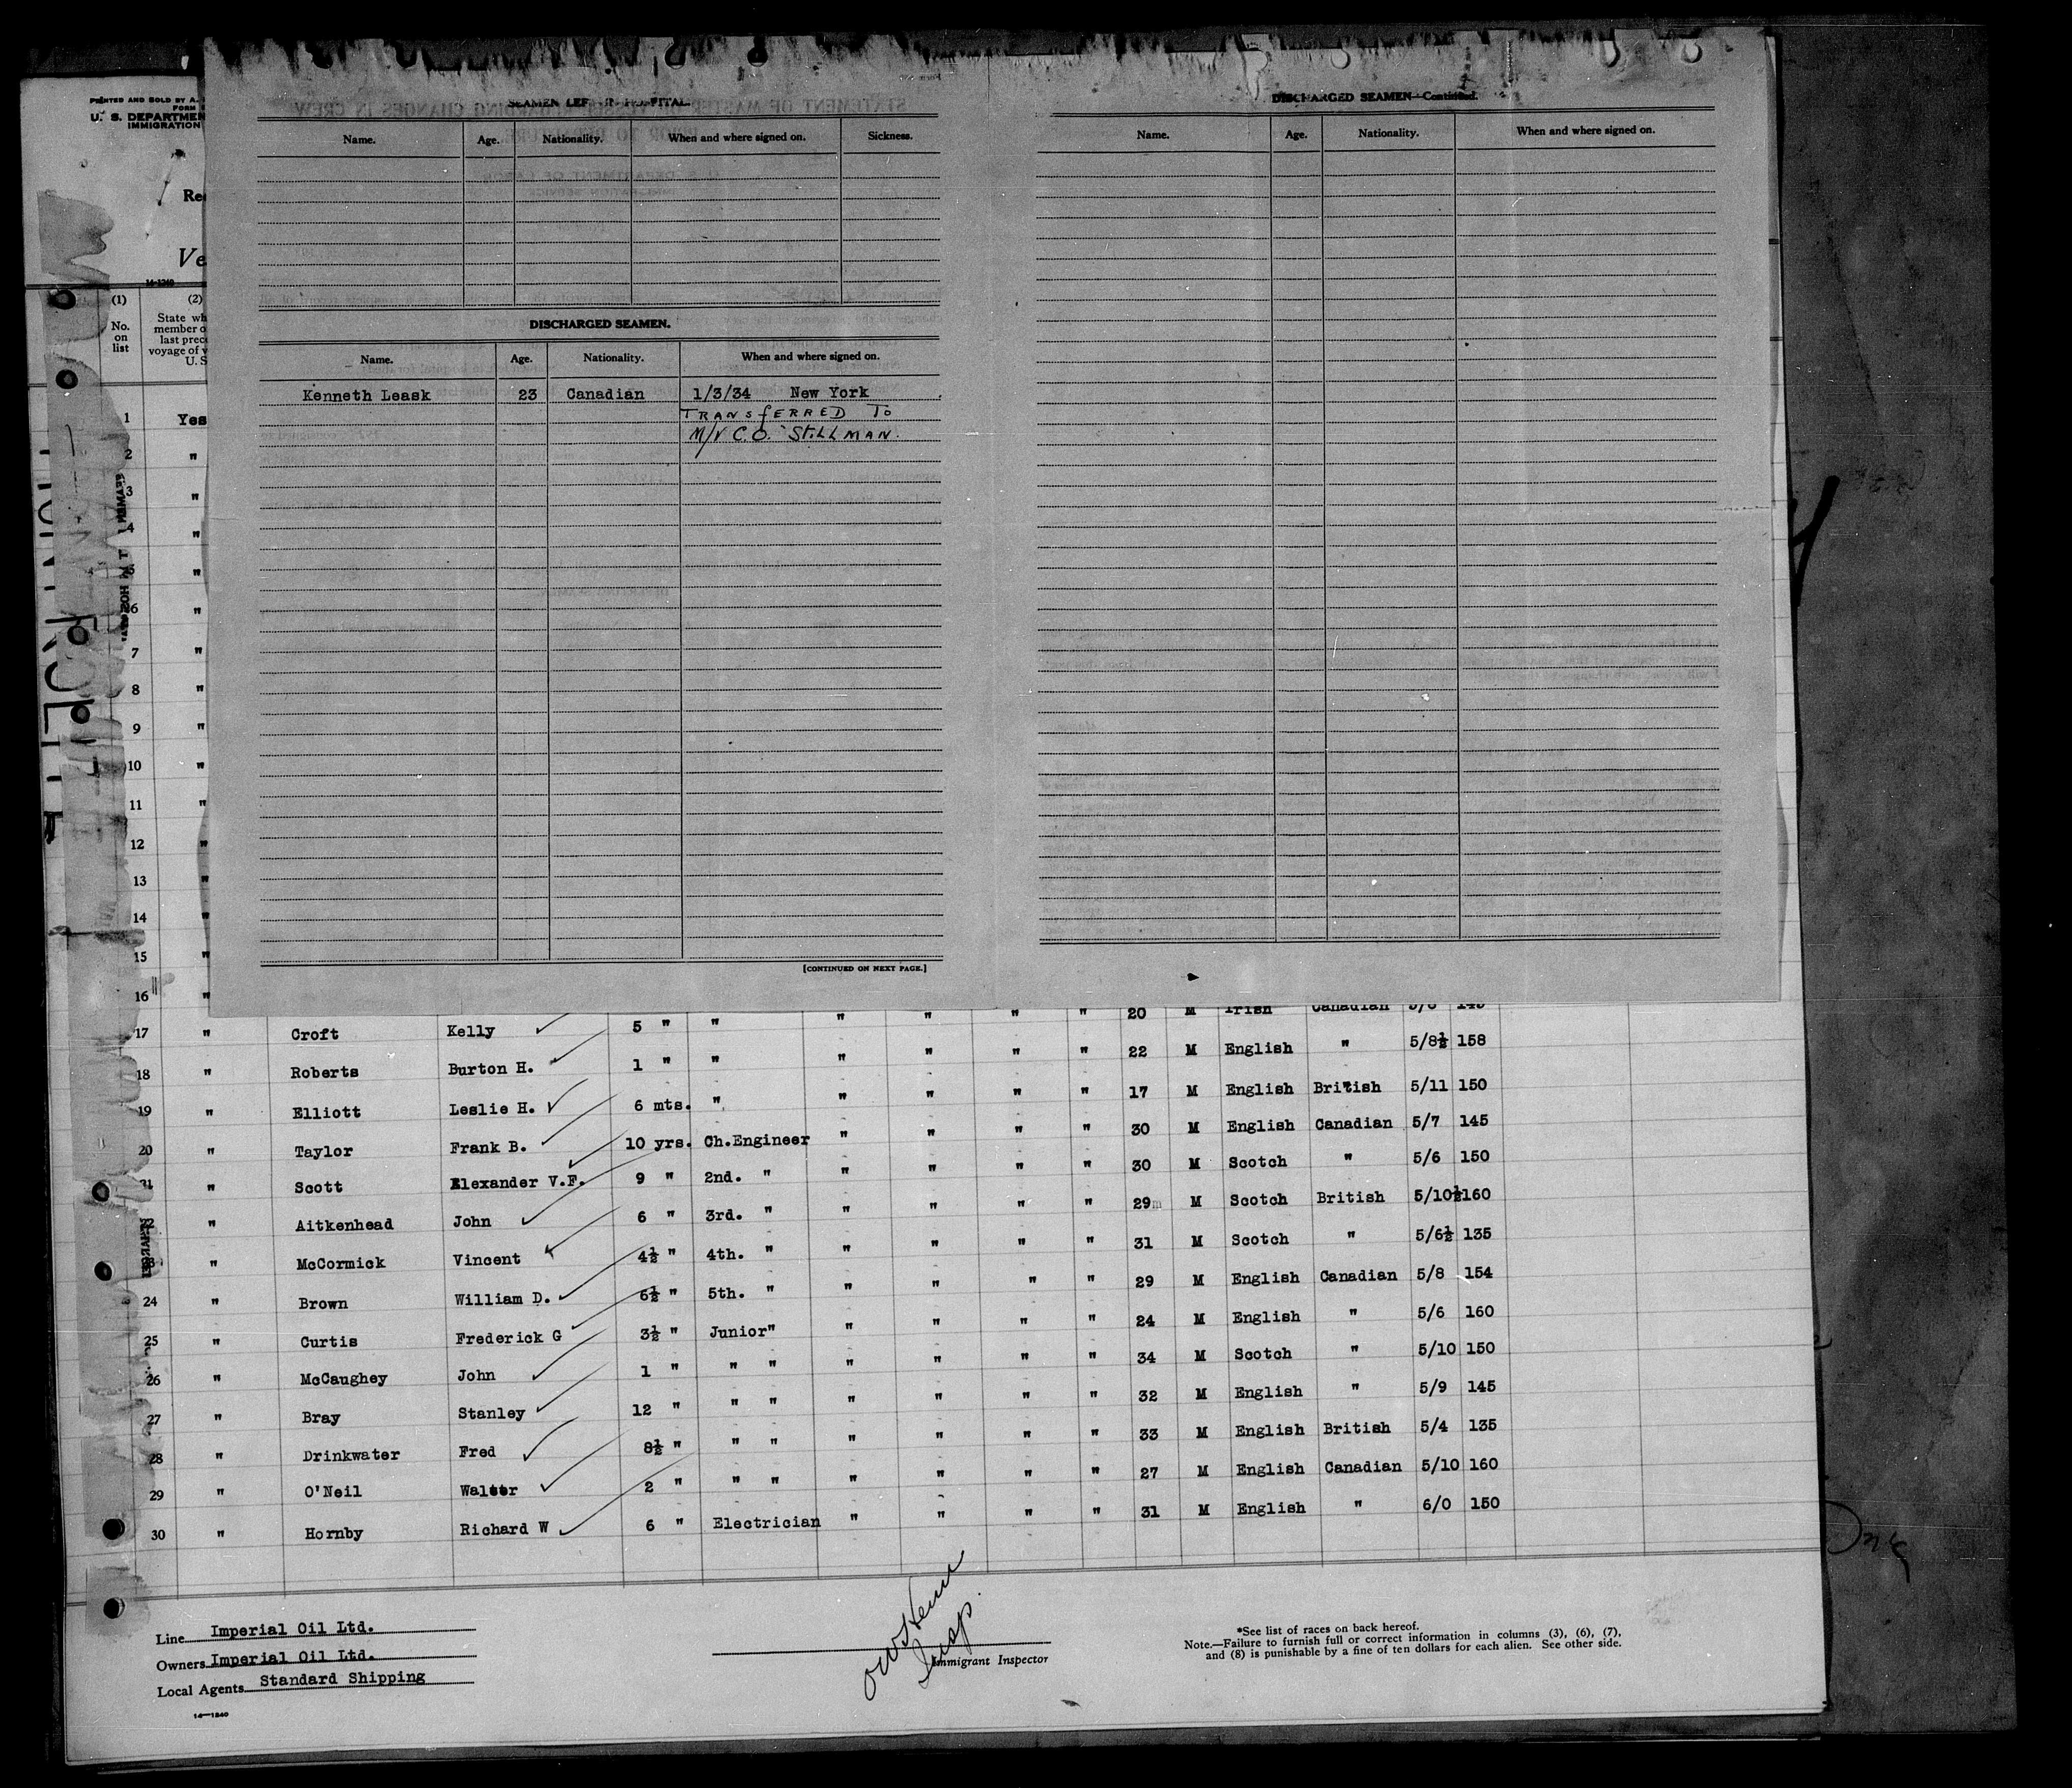 PRINTED AND SOLD BY A.
FORM
U. S. DEPARTMEN
IMMIGRATION
Ve
14-1240
(1) (2)
No. on list
State wh
member o
last prec
voyage of v
U. S
SEAMEN LEFT IN HOSPITAL.
Name. Age. Nationality. When and where signed on. Sickness.
DISCHARGED SEAMEN.
Name. Age. Nationality. When and where signed on.
Kenneth Leask 23 Canadian 1/3/34 New York
TRANSFERRED TO
M/V C.O. STILLMAN.
[CONTINUED ON NEXT PAGE.]
DISCHARGED SEAMEN—Continued.
Name. Age. Nationality. When and where signed on.
1 Yes
2 "
3 "
4 "
5 "
6 "
7 "
8 "
9 "
10 "
11 "
12 "
13 "
14 "
15 "
16 "
17 " Croft Kelly 5 " " " " " " 20 M Irish Canadian 145
18 " Roberts Burton H. 1 " " " " " " 22 M English " 5/8½ 158
19 " Elliott Leslie H. 6 mts. " " " " " 17 M English British 5/11 150
20 " Taylor Frank B. 10 yrs. Ch.Engineer " " " " 30 M English Canadian 5/7 145
21 " Scott Alexander V.F. 9 " 2nd. " " " " " 30 M Scotch " 5/6 150
22 " Aitkenhead John 6 " 3rd. " " " " " 29 M Scotch British 5/10½ 160
23 " McCormick Vincent 4½ " 4th. " " " " " 31 M Scotch " 5/6½ 135
24 " Brown William D. 6½ " 5th. " " " " " 29 M English Canadian 5/8 154
25 " Curtis Frederick G 3½ " Junior" " " " " 24 M English " 5/6 160
26 " McCaughey John 1 " " " " " " " 34 M Scotch " 5/10 150
27 " Bray Stanley 12 " " " " " " " 32 M English " 5/9 145
28 " Drinkwater Fred 8½ " " " " " " " 33 M English British 5/4 135
29 " O'Neil Walter 2 " " " " " " " 27 M English Canadian 5/10 160
30 " Hornby Richard W 6 " Electrician " " " " 31 M English " 6/0 150
Line Imperial Oil Ltd.
Owners Imperial Oil Ltd.
Local Agents Standard Shipping
14—1240
Insp.
Immigrant Inspector
*See list of races on back hereof.
Note.—Failure to furnish full or correct information in columns (3), (6), (7),
and (8) is punishable by a fine of ten dollars for each alien. See other side.